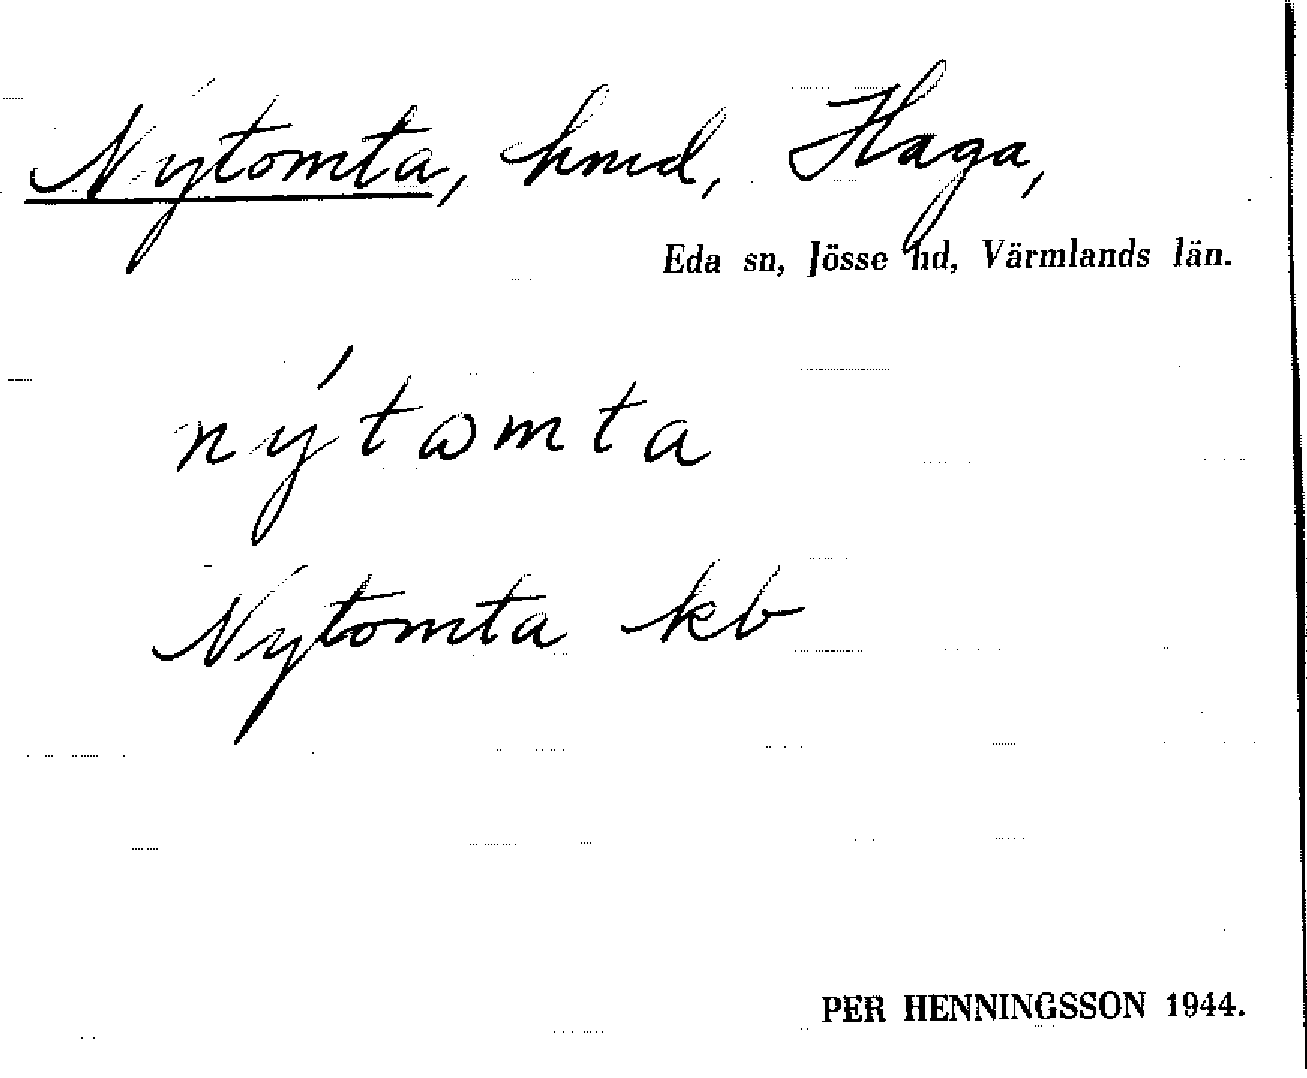 Nýtomta, hmd, Haga,
Eda sn, Jösse hd, Värmlands län.
nýtωmta
Nytomta kb
PER HENNINGSSON 1944.